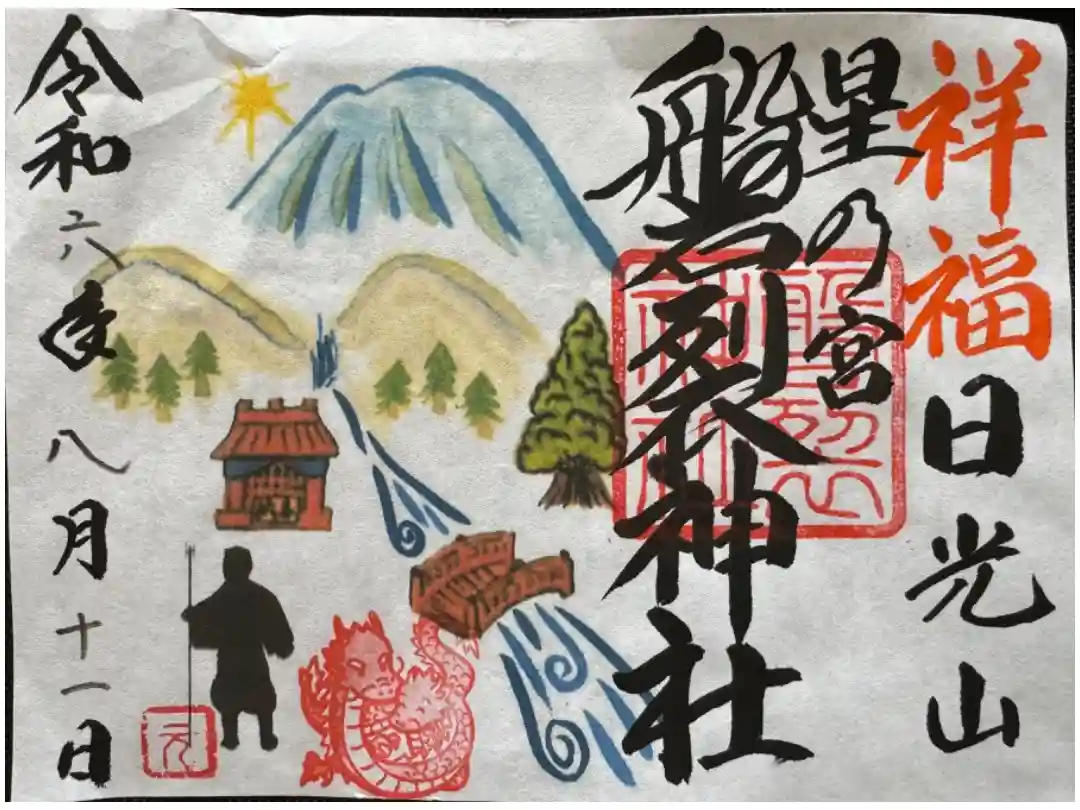 祥福日光山
星乃宮
磐裂神社
令和六年八月十一日